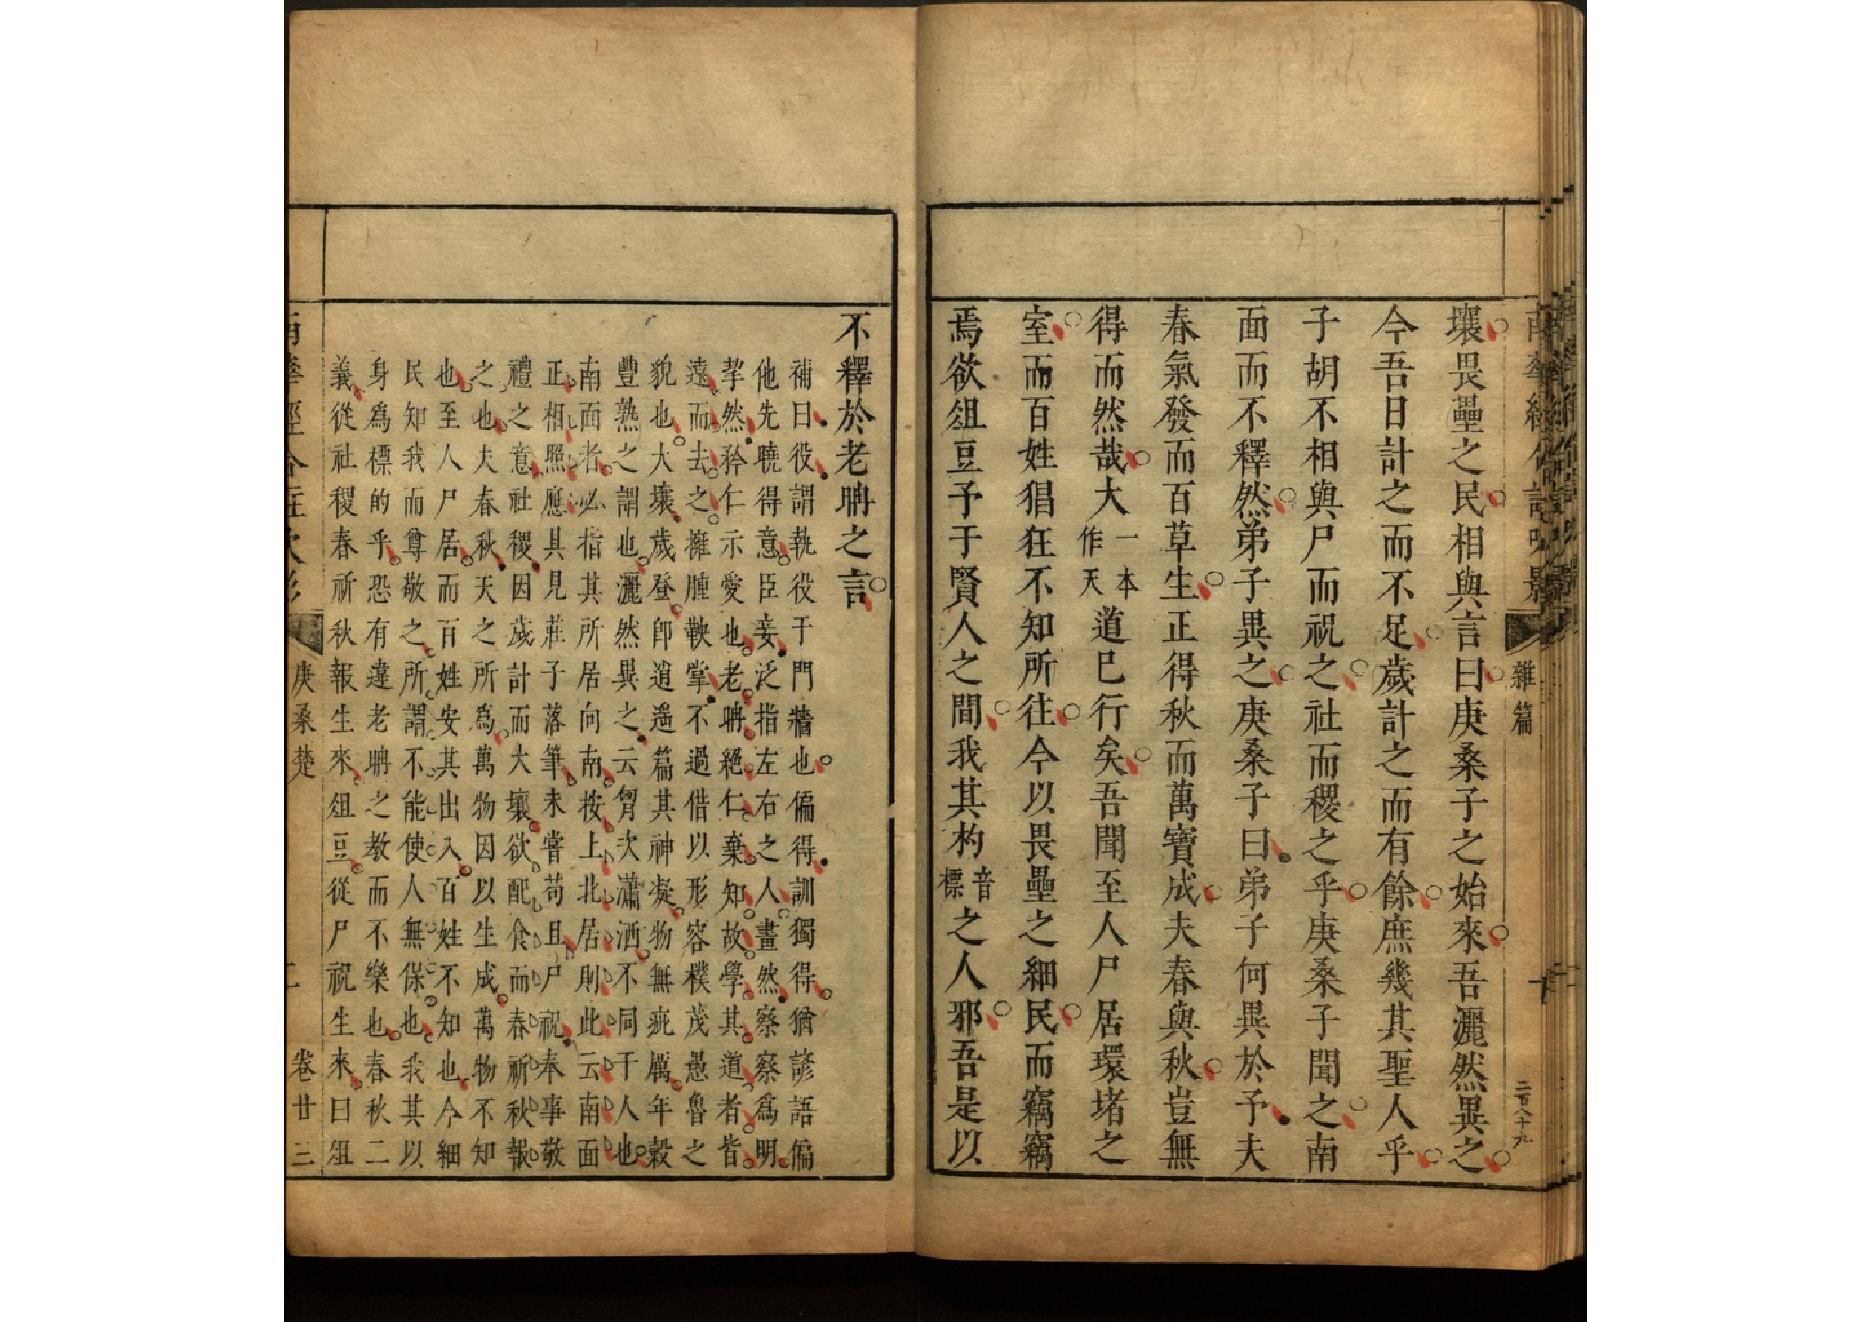 壤畏壘之民相與言曰庚桑子之始來吾灑然異之
今吾日計之而不足歲計之而有餘庶幾其聖人乎
子胡不相與尸而祝之社而稷之乎庚桑子聞之南
面而不釋然弟子異之庚桑子曰弟子何異於予夫
春氣發而百草生正得秋而萬寶成夫春與秋豈無
得而然哉大一本作天道已行矣吾聞至人尸居環堵之
室而百姓猖狂不知所往今以畏壘之細民而竊竊
焉欲俎豆予于賢人之間我其杓音標之人邪吾是以
雜篇
二百八十九
不釋於老聃之言
補曰役謂執役于門牆也偏得訓獨得猶諺語偏
他先曉得意臣妾泛指左右之人畫然察察爲明
挈然矜仁示愛也老聃絕仁棄知故學其道者皆
遠而去之擁腫鞅掌不過借以形容樸茂愚魯之
貌也大壤歲登卽道遙篇其神凝物無疵厲年穀
豐熟之謂也灑然異之云胷次瀟洒不同于人也
南面者必指其所居向南按上北居則此云南面
正相照應其見莊子落筆未嘗苟且尸祝奉事敬
禮之意社稷因歲計而大壤欲配食而春祈秋報
之也夫春秋天之所爲萬物因以生成萬物不知
也至人尸居而百姓安其出入百姓不知也今細
民知我而尊敬之所謂不能使人無保也我其以
身爲標的乎恐有違老聃之教而不樂也春秋二
義從社稷春祈秋報生來俎豆從尸祝生來曰俎
庚桑楚
卷廿三